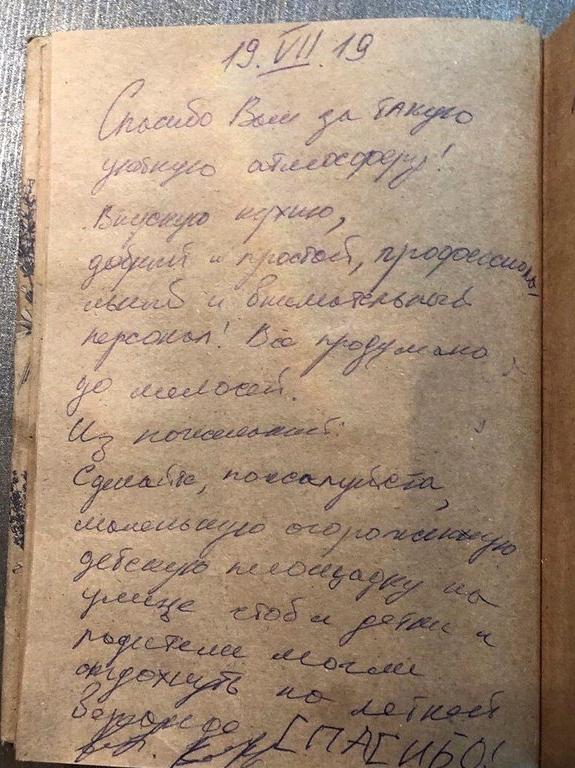 19.VII.19
Спасибо Вам за такую
уютную атмосферу!
Вкусную кухню,
добрый и простой, профессиональ-
ный и внимательный
персонал! Всё продумано
до мелочей.
Из пожеланий:
Сделайте, пожалуйста,
маленькую огороженную
детскую площадку на
улице чтоб и детки и
родители могли
отдохнуть на летней
веранде
СПАСИБО!